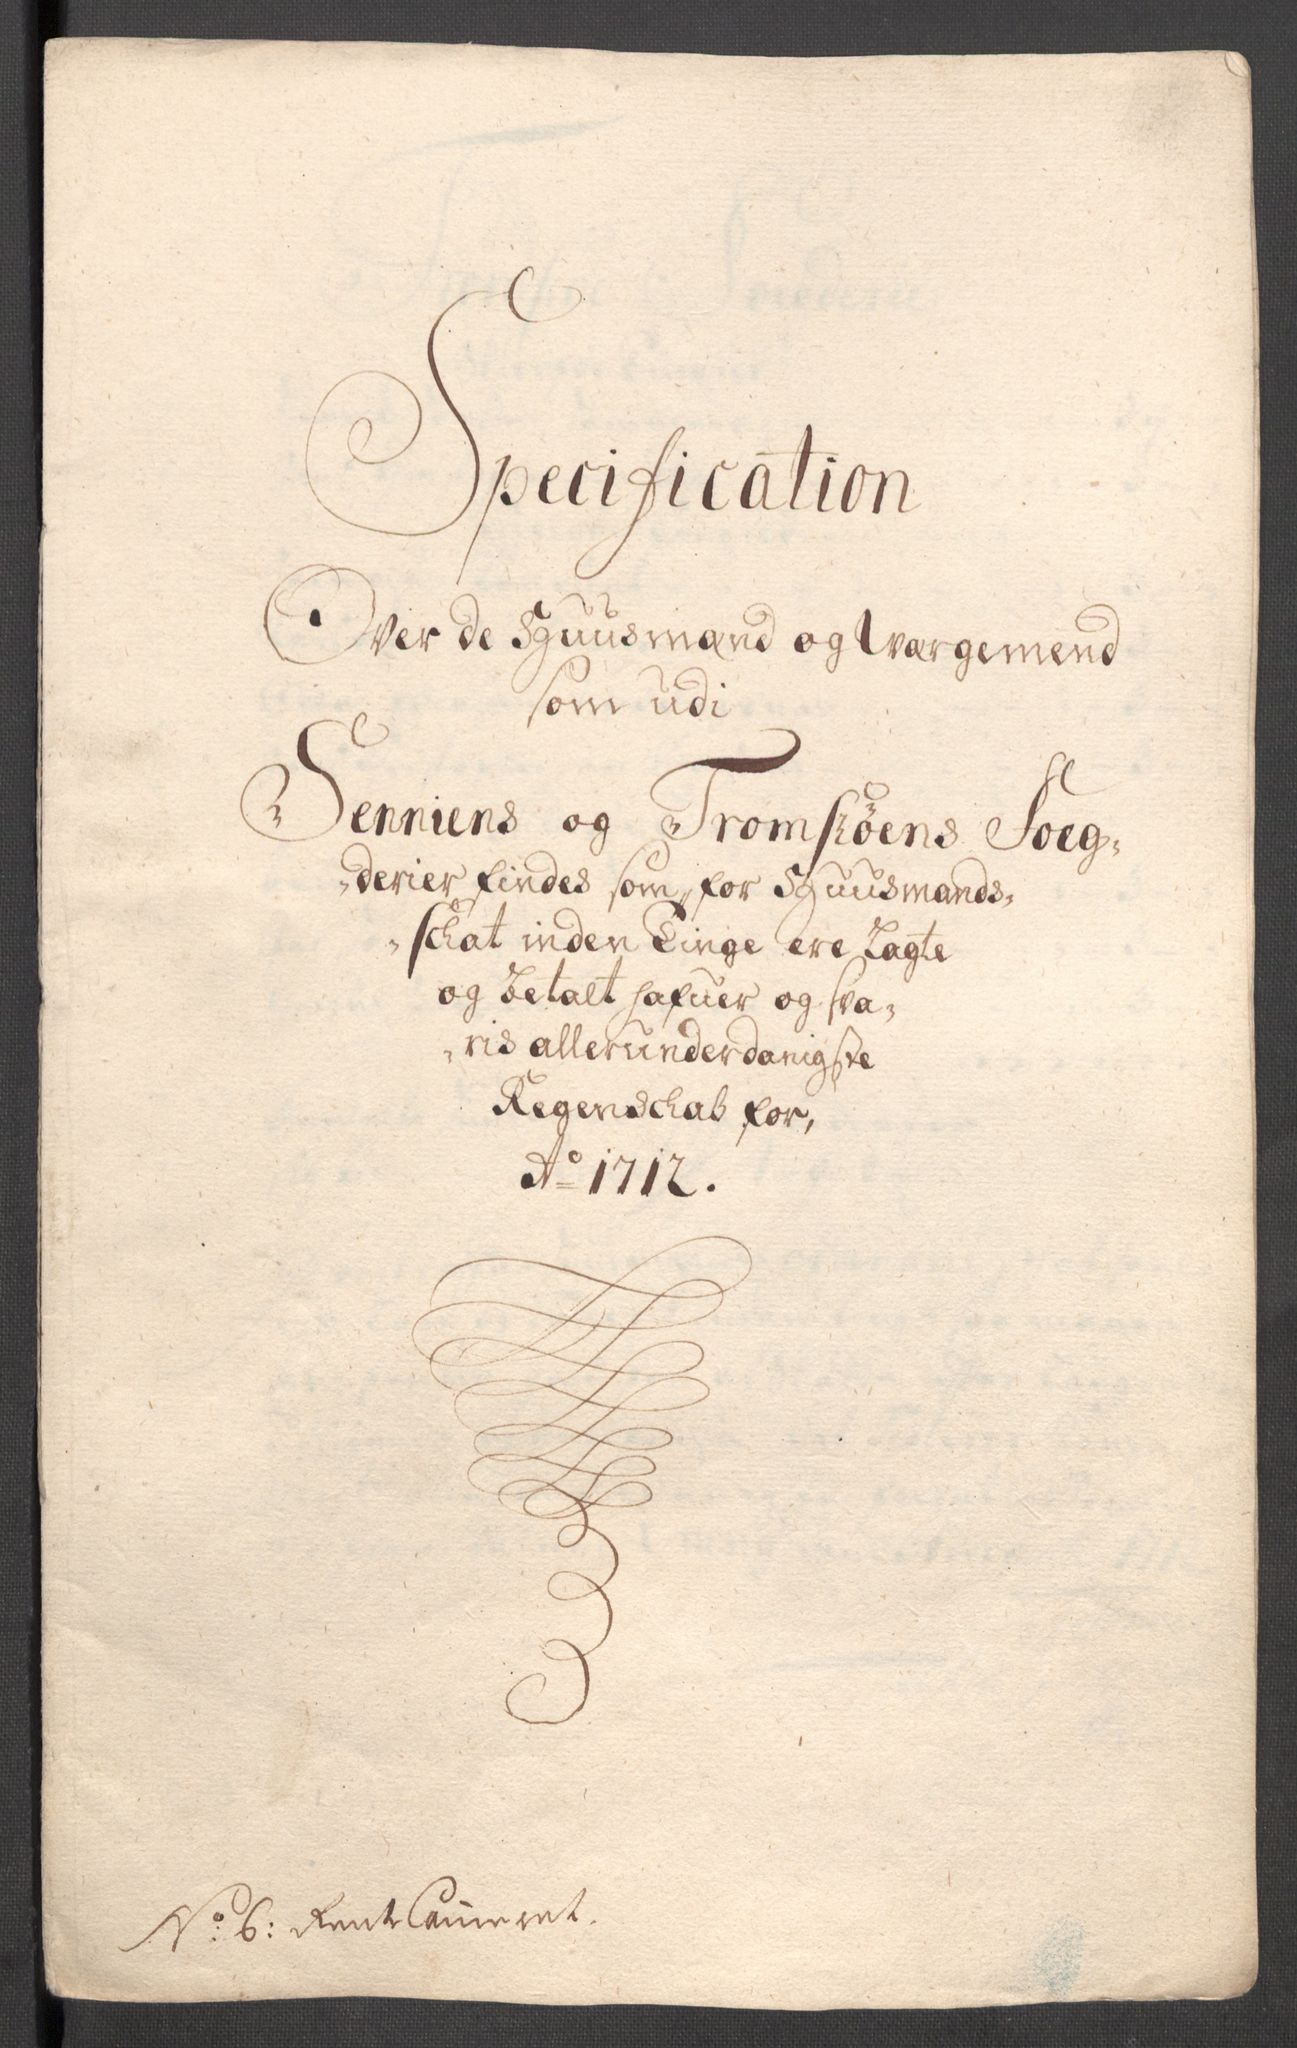 Specification
Over de Huusmænd og Værgemend
som udi
Senniens og Tromsøens Foeg-
-derier findes som for Huusmands-
-schat inden Tinge ere Lagte
og betalt hafuer og sva-
-ris allerunderdanigste
Regenschab for,
Ao 1712.
No. 6: RenteCammeret.